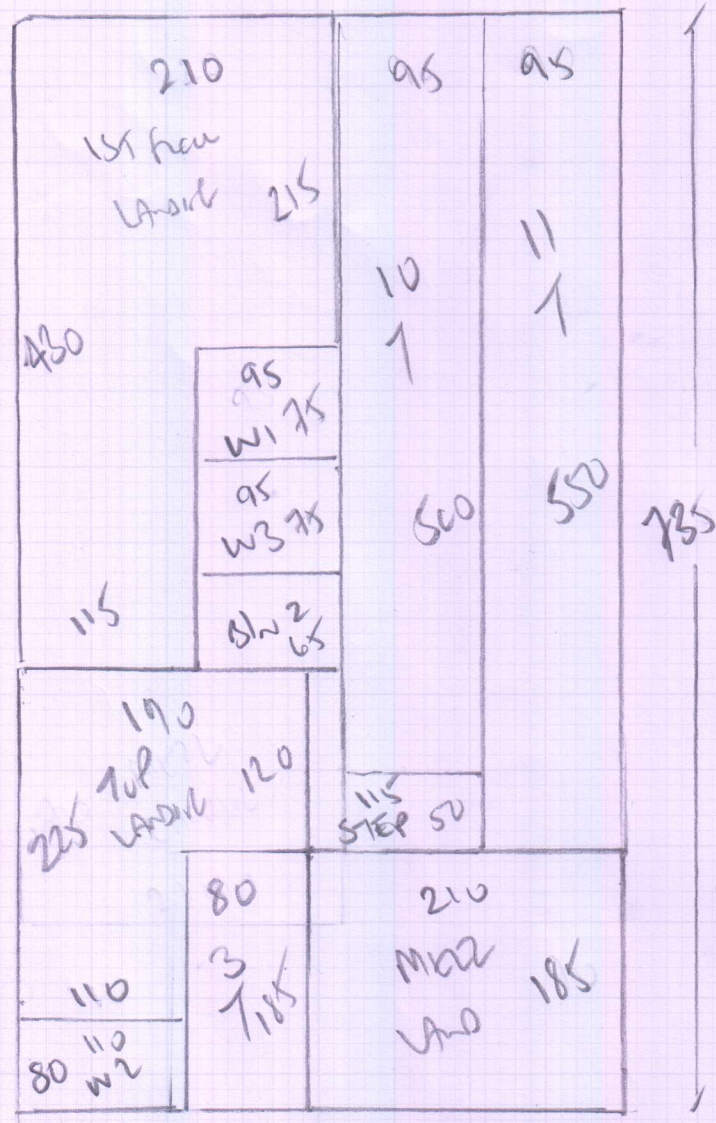 210
1ST FLOOR
LANDING 215
430
115
95
W1 75
95
W3 75
B/N 2
65
95
10
1
500
95
11
1
550
735
190
TOP
LANDING 120
225
110
110
80 W2
80
3
1 185
115
STEP 50
210
MEZZ
LAND 185